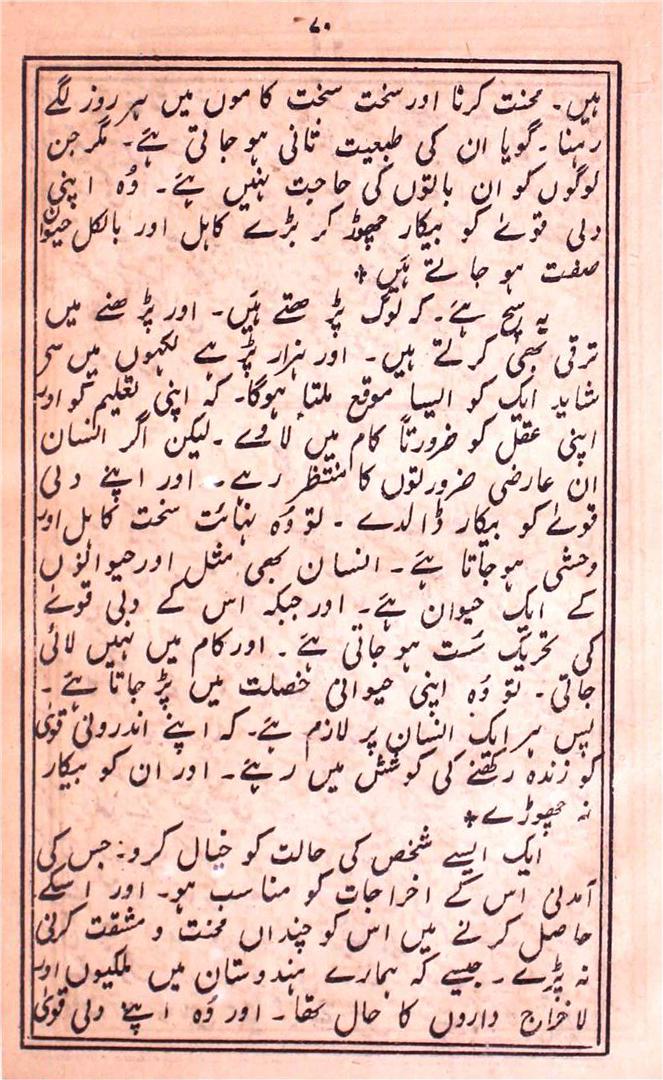 ۷۰
ہیں۔ محنت کرنا اور سخت سخت کاموں میں ہر روز لگے
رہنا۔ گویا ان کی طبعیت ثانی ہو جاتی ہے۔ مگر جن
لوگوں کو ان باتوں کی حاجت نہیں ہے۔ وُہ اپنی
دلی قویٰ کو بیکار چھوڑ کر بڑے کاہل اور بالکل حیوان
صفت ہو جاتے ہَیں *
یہ سچ ہَے۔ کہ لوگ پڑھتے ہَیں۔ اور پڑھنے میں
ترقی بھی کرتے ہیں۔ اور ہزار پڑہے لکہوں میں سے
شاید ایک کو ایسا موقع ملتا ہوگا۔ کہ اپنی تعلیم کو اور
اپنی عقل کو ضرورتاً کام میں لاوے۔ لیکن اگر انسان
ان عارضی ضرورتوں کا منتظر رہے۔ اور اپنے دلی
قویٰ کو بیکار ڈالدے۔ تو وُہ نہائت سخت کاہل اور
وحشی ہو جاتا ہے۔ انسان بھی مثل اور حیوانوں
کے ایک حیوان ہے۔ اور جبکہ اس کے دلی قویٰ
کی تحریک سُست ہو جاتی ہے۔ اور کام میں نہیں لائی
جاتی۔ تو وُہ اپنی حیوانی خصلت میں پڑ جاتا ہے۔
پس ہر ایک انسان پر لازم ہے۔ کہ اپنے اندرونی قویٰ
کو زندہ رکھنے کی کوشش میں رہئے۔ اور ان کو بیکار
نہ چھوڑے *
ایک ایسے شخص کی حالت کو خیال کرو: جس کی
آمدنی اس کے اخراجات کو مناسب ہو۔ اور اسکے
حاصل کرنے میں اس کو چنداں محنت و مشقت کرنی
نہ پڑے۔ جیسے کہ ہمارے ہندوستان میں ملکیوں اور
لاخراج داروں کا حال تھا۔ اور وُہ اپنے دلی قویٰ